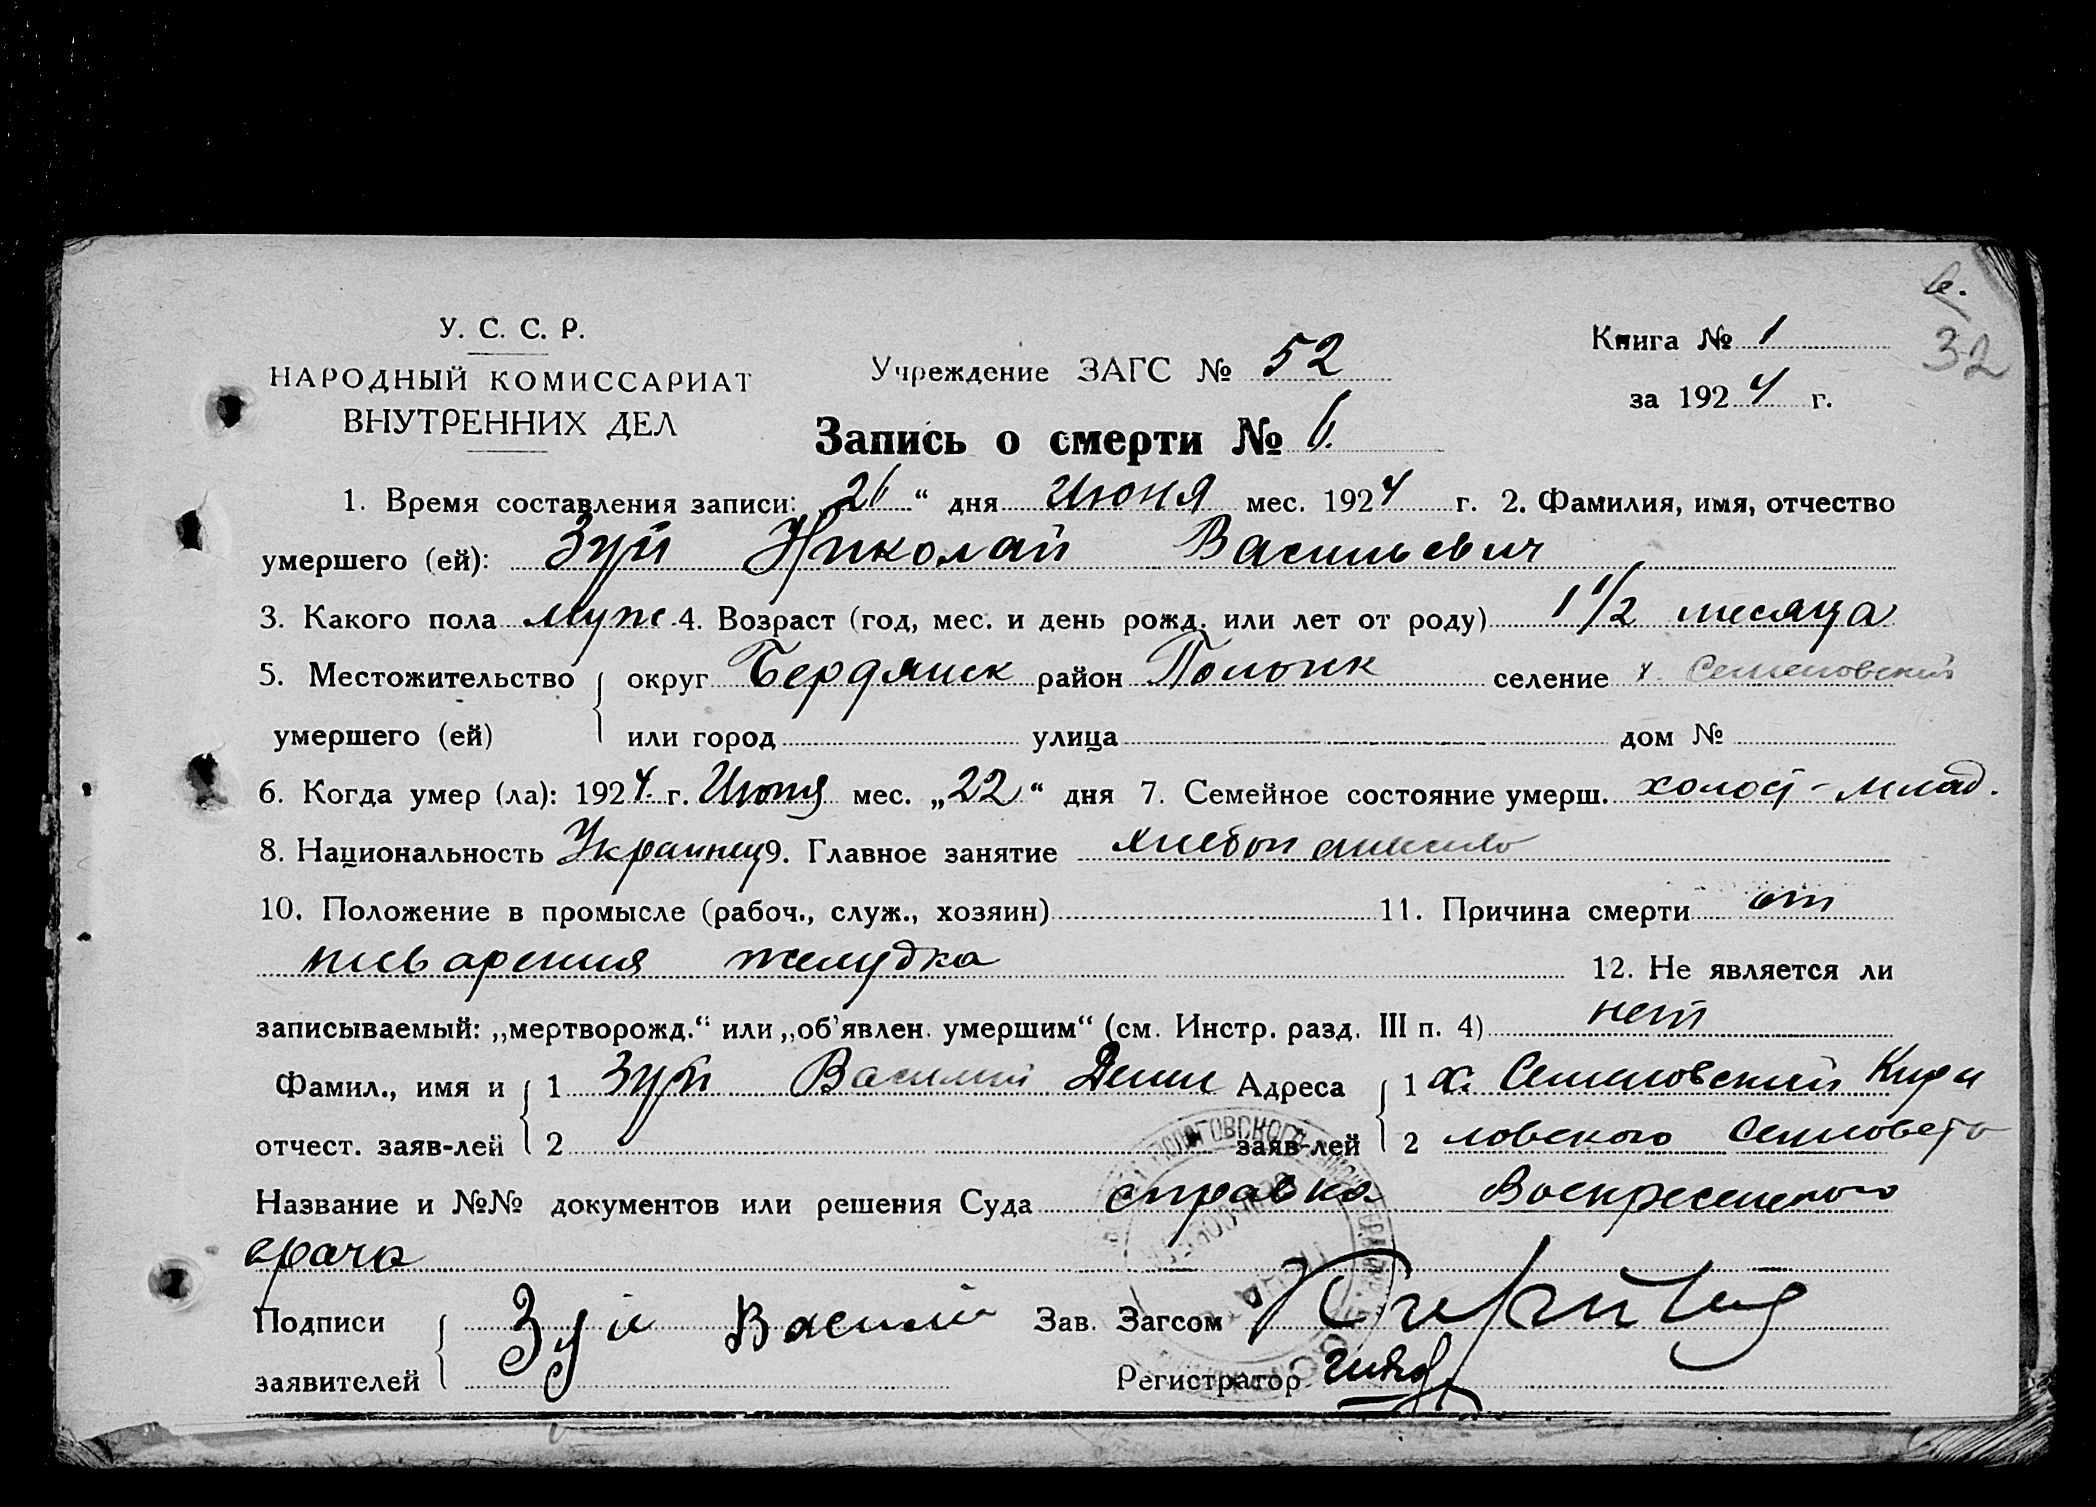 6.
32
У. С. С. Р.
НАРОДНЫЙ КОМИССАРИАТ
ВНУТРЕННИХ ДЕЛ
Учреждение ЗАГС № 52
Книга № 1
за 1924 г.
Запись о смерти № 6.
1. Время составления записи: 26 “ дня Июня мес. 1924 г. 2. Фамилия, имя, отчество
умершего (ей): Зуй Николай Васильевич
3. Какого пола муж. 4. Возраст (год, мес. и день рожд. или лет от роду) 1 1/2 месяца
5. Местожительство округ Бердянск район Пологск селение х. Семеновский
умершего (ей) или город улица дом №
6. Когда умер (ла): 1924 г. Июня мес. „22“ дня 7. Семейное состояние умерш. холост - млад.
8. Национальность Украинец 9. Главное занятие
10. Положение в промысле (рабоч., служ., хозяин) 11. Причина смерти от
желудка 12. Не является ли
записываемый: „мертворожд.“ или „об’явлен. умершим“ (см. Инстр. разд. III п. 4) нет
Фамил., имя и 1 Зуй Василий Демид Адреса 1 х. Семеновский Кири
отчест. заяв-лей 2 заяв-лей 2 ловского Сельсовета
Название и №№ документов или решения Суда справка Воскресенского
врача
Подписи Зуй Василий Зав. Загсом
заявителей Регистратор